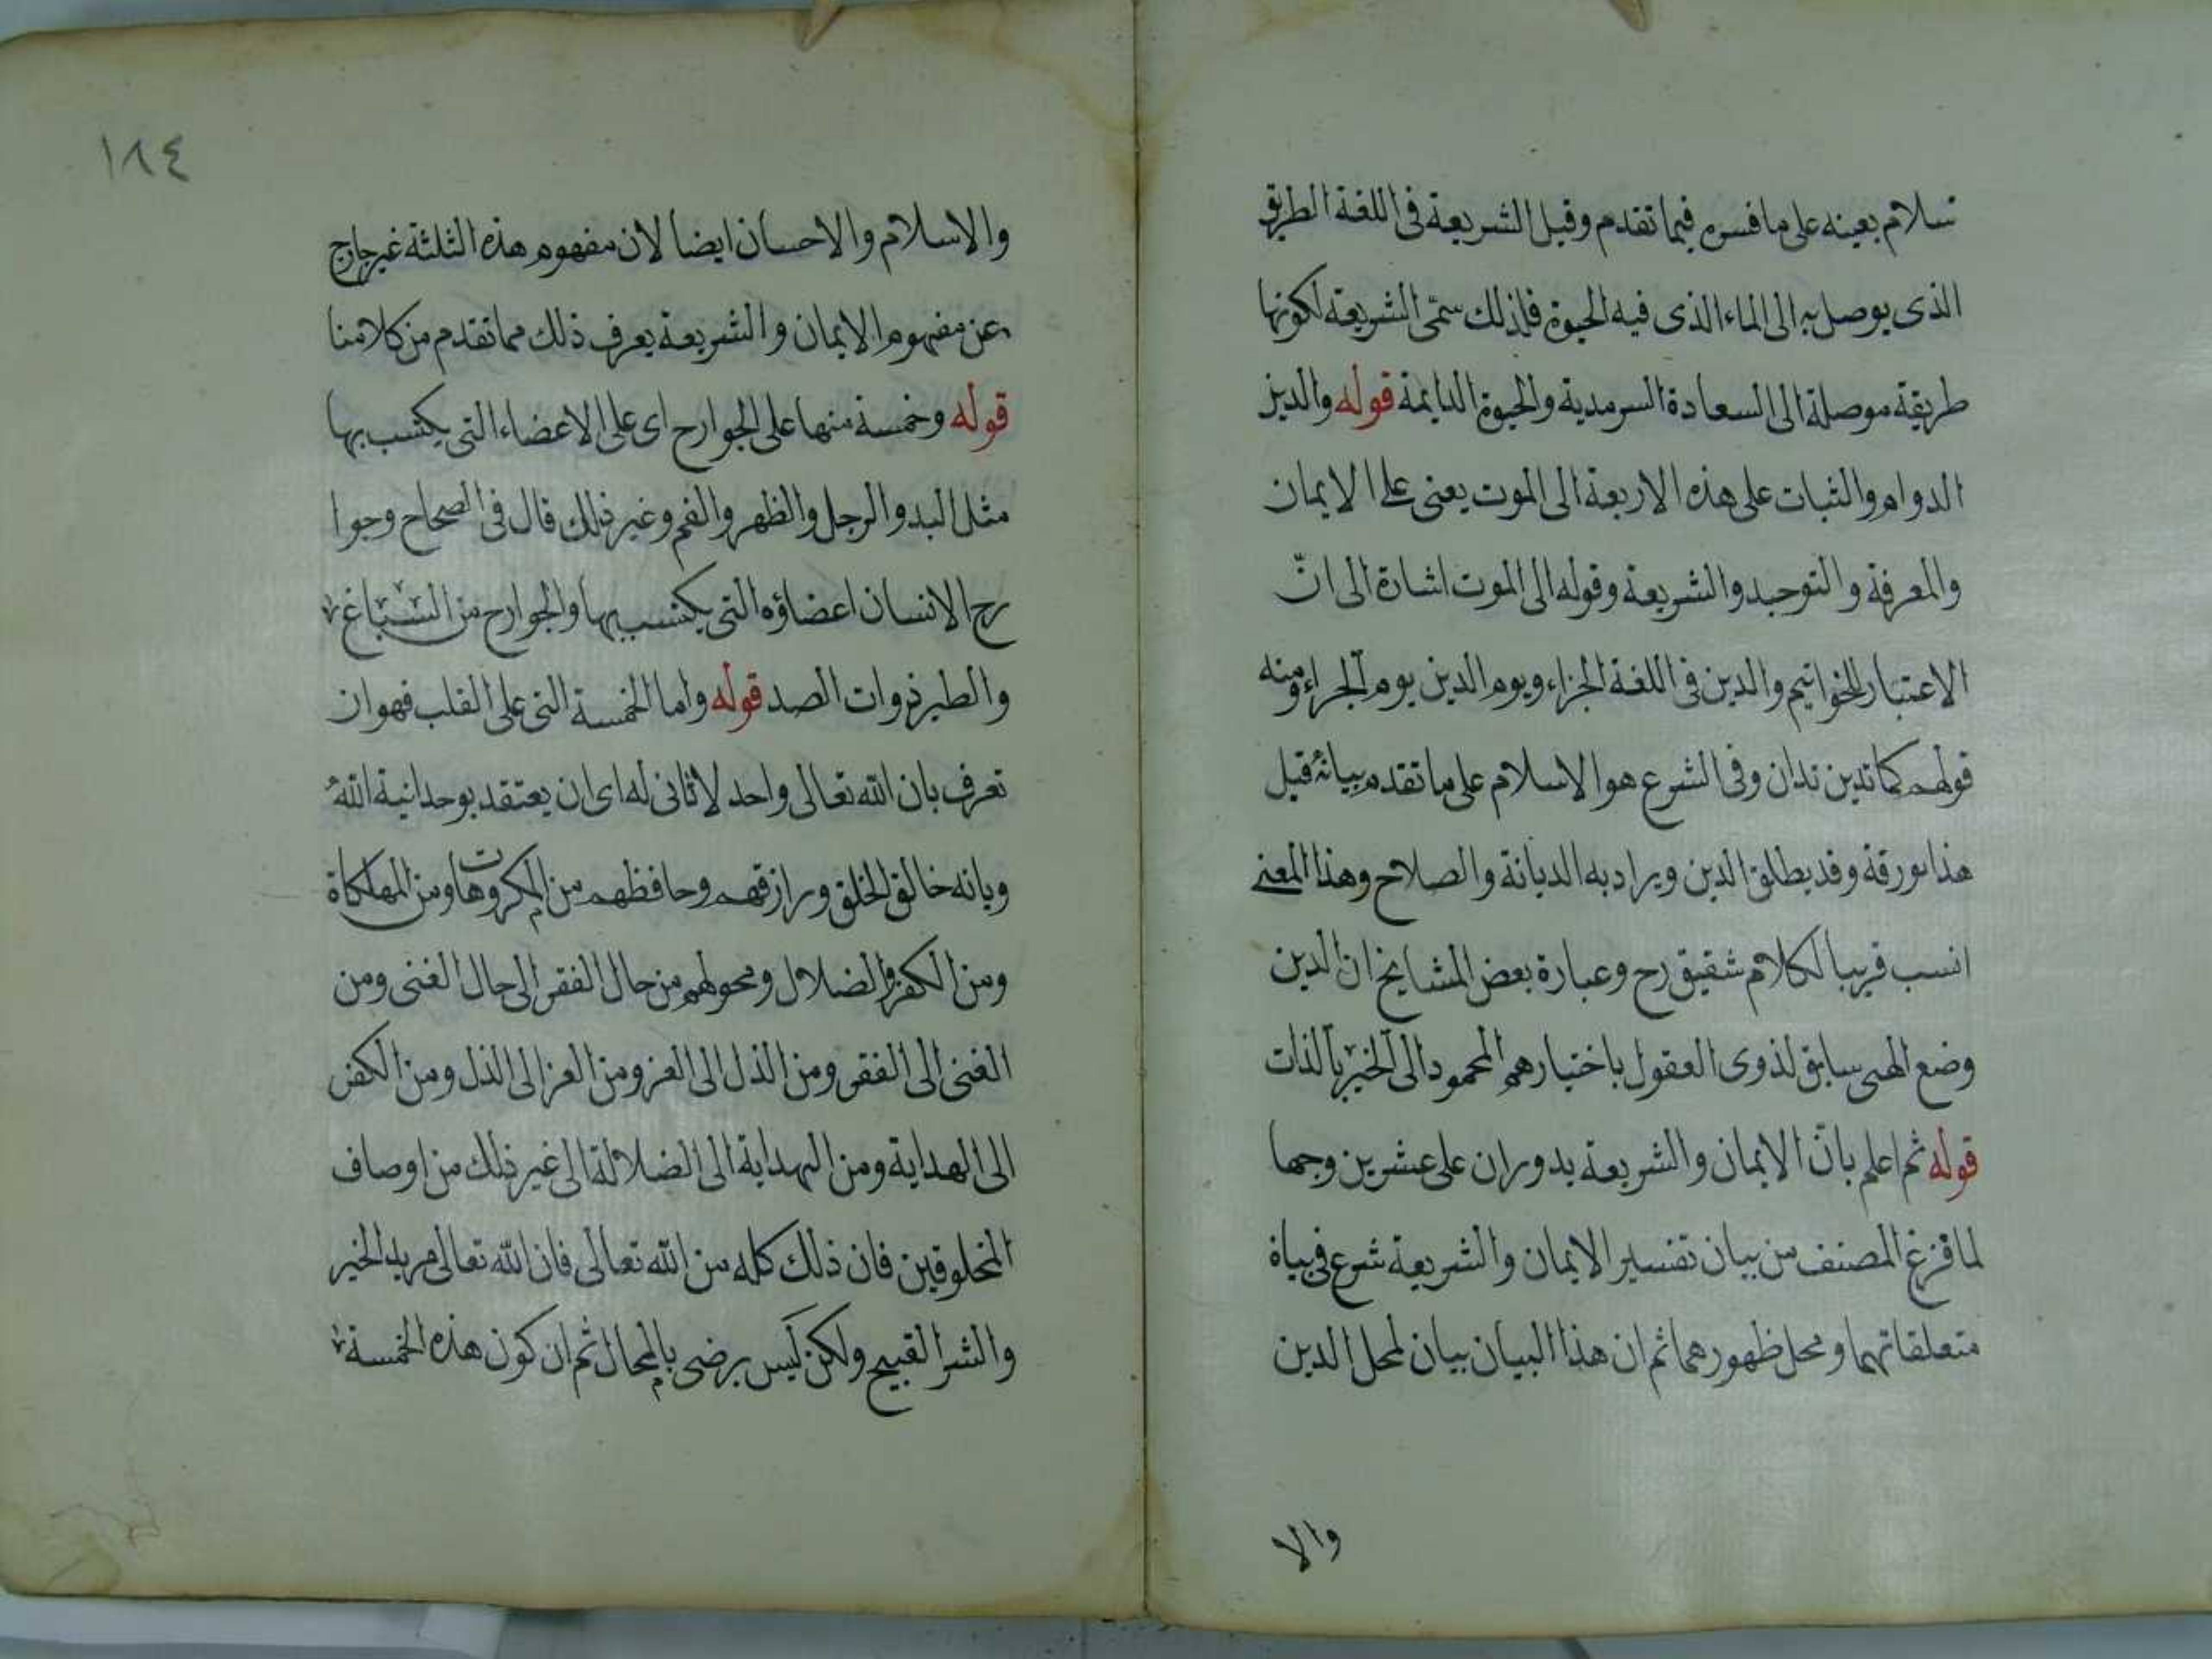 سلام بعينه على ما فسره فيما تقدم وقيل الشريعة فى اللغة الطريق
الذى يوصل به الى الماء الذى فيه الحيوة فلذلك سمّى الشريعة لكونها
طريقة موصلة الى السعادة السرمدية والحيوة الدايمة قوله والدين
الدوام والثبات على هذه الاربعة الى الموت يعنى على الايمان
والمعرفة والتوحيد والشريعة وقوله الى الموت اشارة الى انّ
الاعتبار للخواتيم والدين فى اللغة الجزاء ويوم الدين يوم الجزاء ومنه
قولهم كما تدين تدان وفى الشرع هو الاسلام على ما تقدم بيانه قبل
هذا بورقة وقد يطلق الدين ويراد به الديانة والصلاح وهذا المعنى
انسب قريبا لكلام شقيق رح وعبارة بعض المشايخ ان الدين
وضع الهى سابق لذوى العقول باختيارهم المحمود الى الخير بالذات
قوله ثم اعلم بانّ الايمان والشريعة يدوران على عشرين وجها
لما فرغ المصنف من بيان تفسير الايمان والشريعة شرع فى بياة
متعلقاتهما ومحل ظهورهما ثم ان هذا البيان بيان لمحل الدين
والا
١٨٤
والاسلام والاحسان ايضا لان مفهوم هذه الثلثة غير جارج
عن مفهوم الايمان والشريعة يعرف ذلك مما تقدم من كلامنا
قوله وخمسة منها على الجوارح اى على الاعضاء التى يكتسب بها
مثل اليد والرجل والظهر والفم وغير ذلك قال فى الصحاح وجوا
رح الانسان اعضاؤه التى يكتسب بها والجوارح من السباغ
والطير ذوات الصد قوله واما الخمسة التى على القلب فهو ان
تعرف بان الله تعالى واحد لا ثانى له اى ان يعتقد بوحدانية الله
وبانه خالق الخلق ورازقهم وحافظهم من المكروهات ومن المهلكاة
ومن الكفر والضلال ومحولهم من حال الفقر الى حال الغنى ومن
الغنى الى الفقر ومن الذل الى العز ومن العز الى الذل ومن الكفر
الى الهداية ومن الهداية الى الضلالة الى غير ذلك من اوصاف
المخلوقين فان ذلك كله من الله تعالى فان الله تعالى مريد الخير
والشر القبيح ولكن ليس يرضى بالمحال ثم ان كون هذه الخمسة